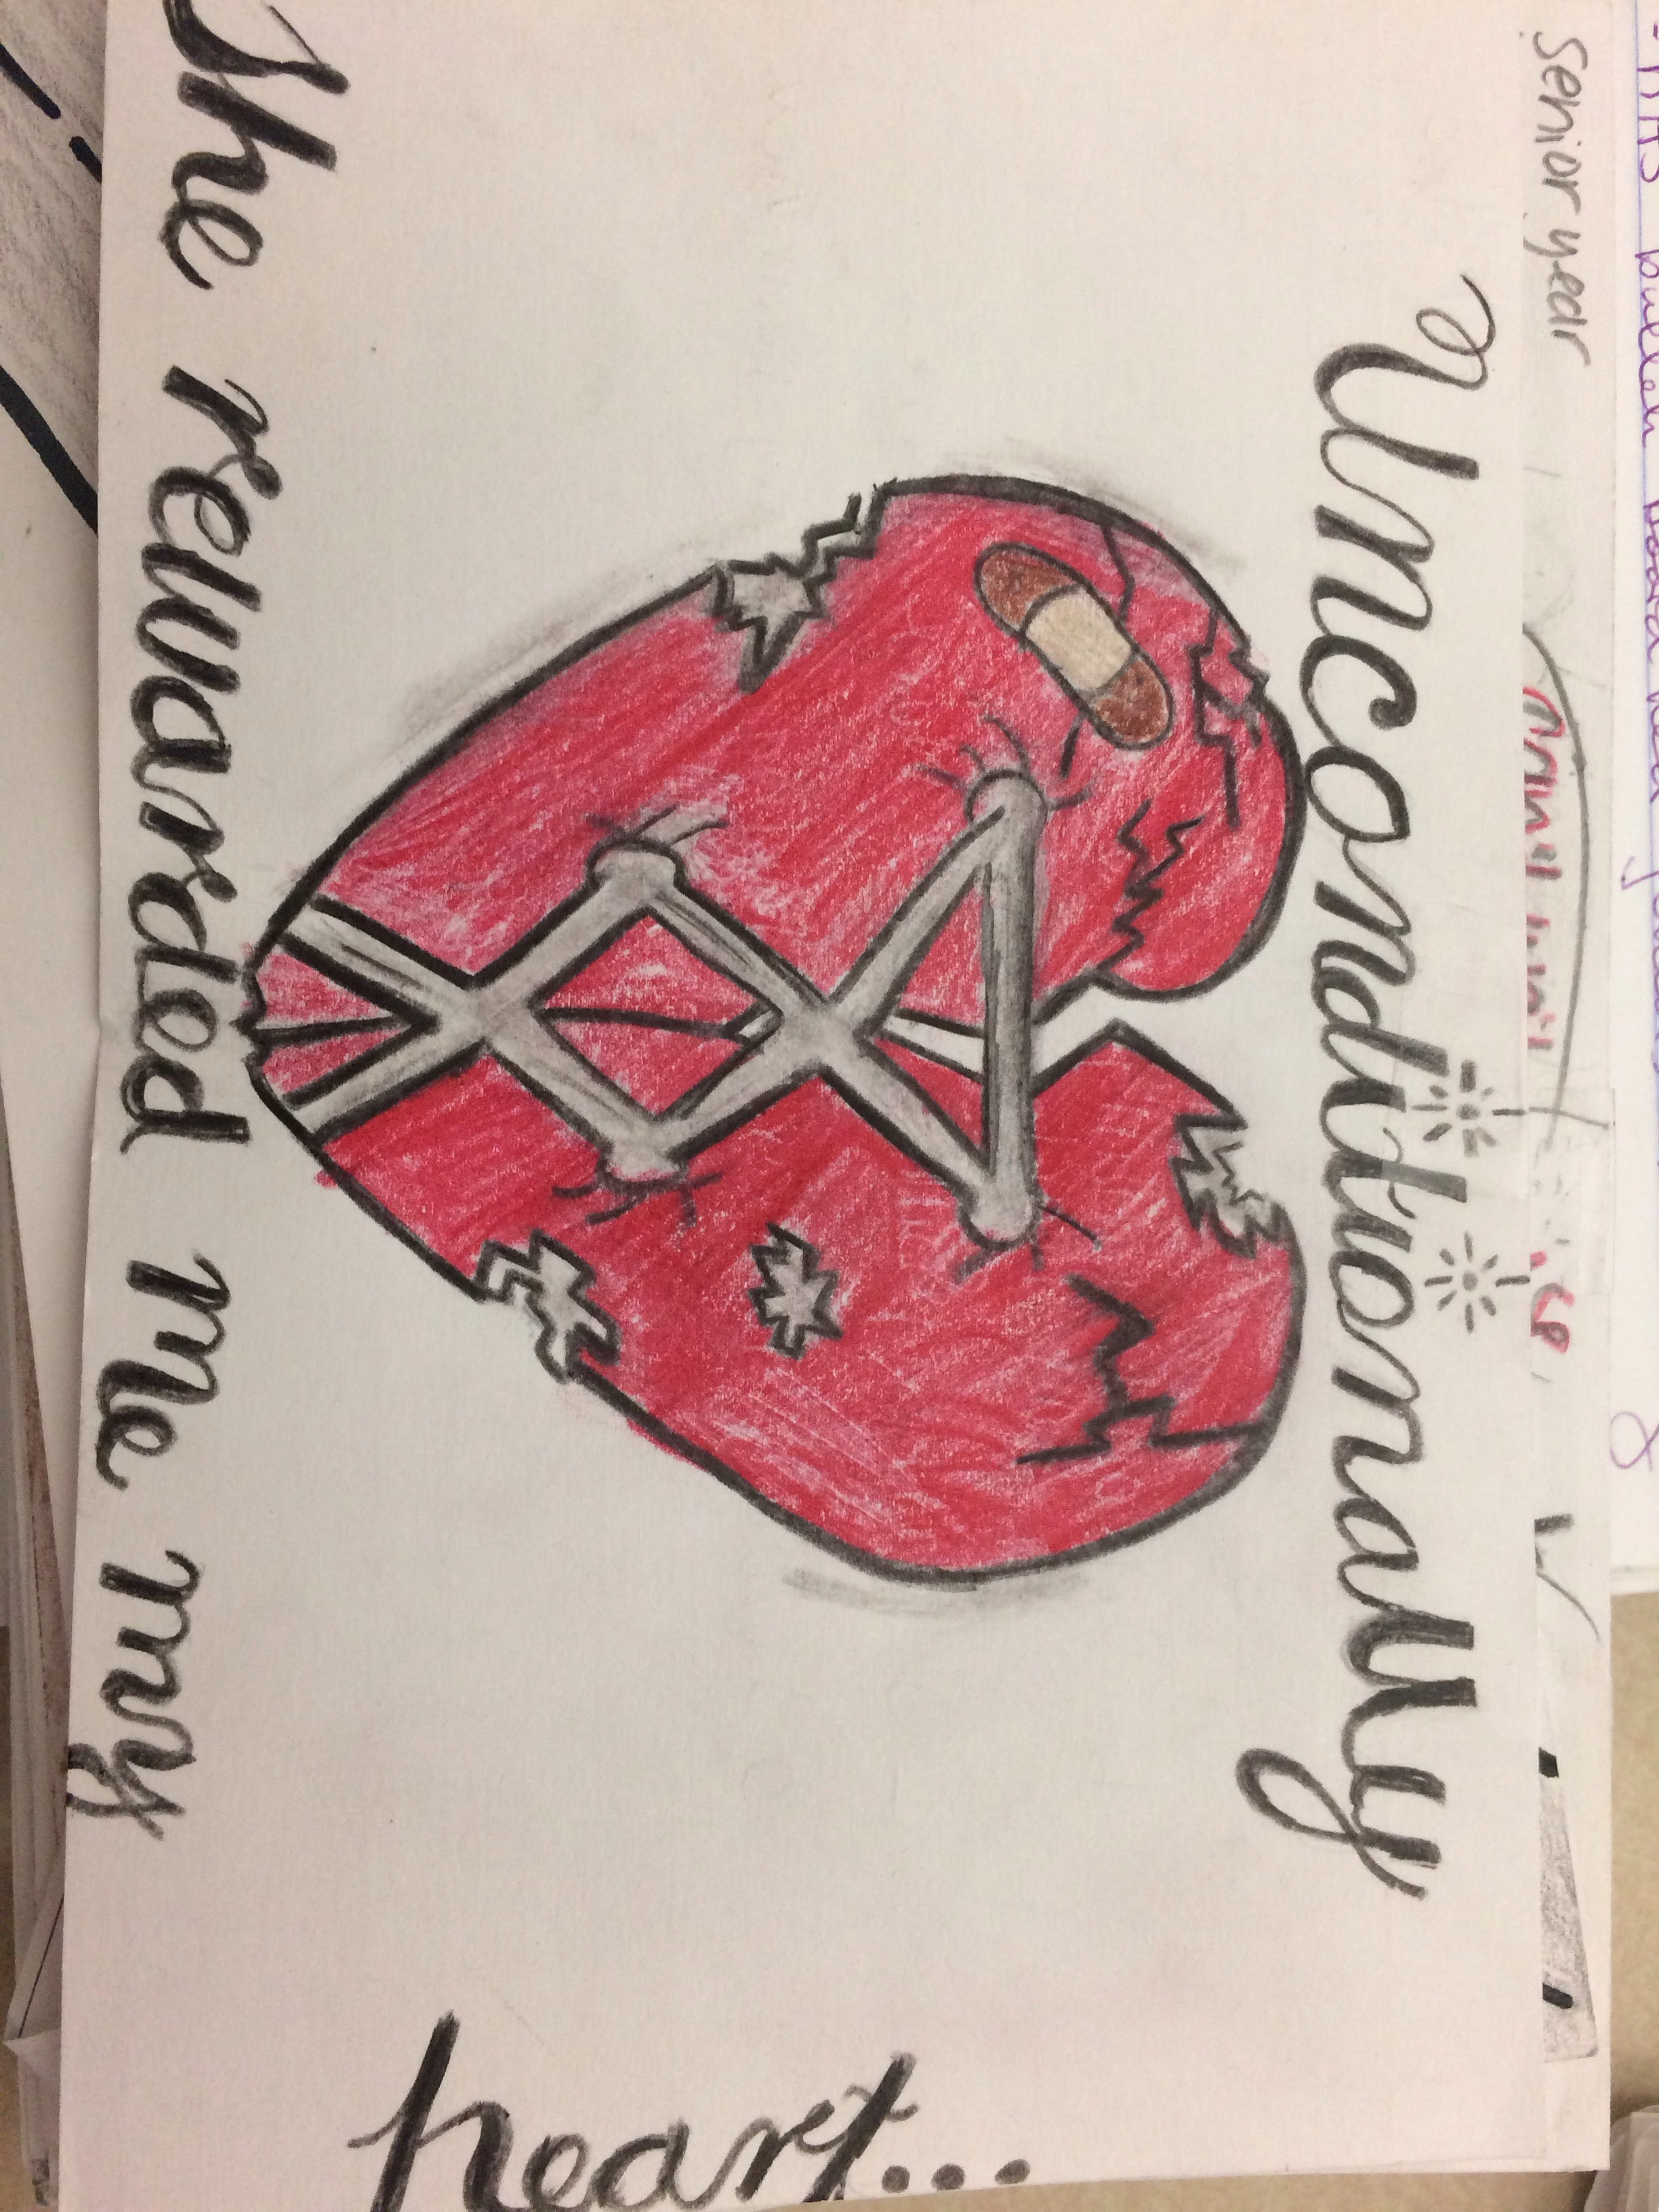 Senior year
Unconditionally
She rewarded me my
heart...